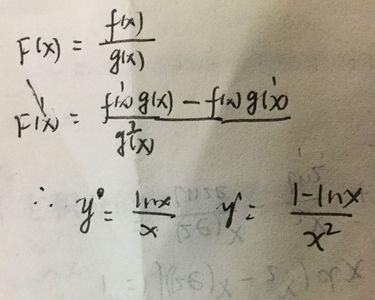 F(x) = f(x) / g(x)
F'(x) = f'(x) g(x) - f(x) g'(x) / g²(x)
∴ y = lnx / x y' = 1-lnx / x²